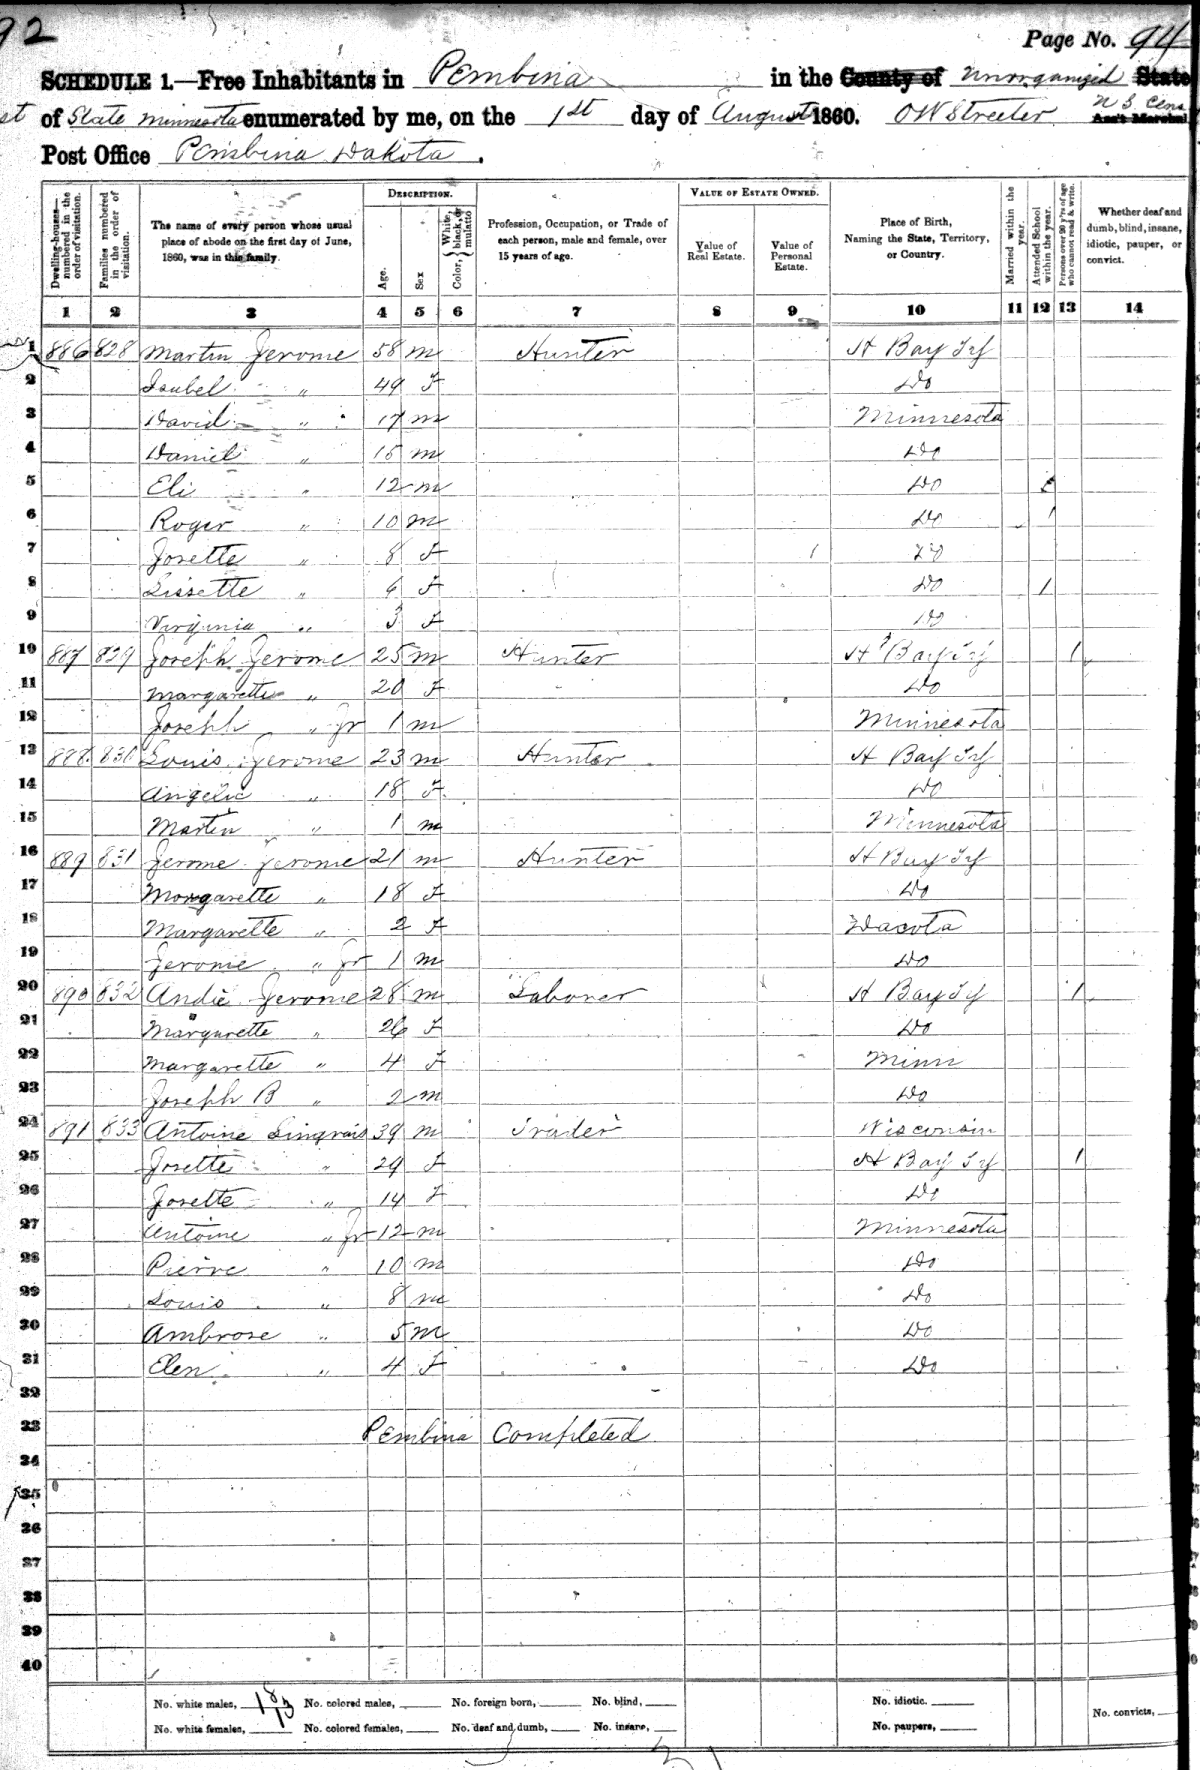 92
Page No. 94
SCHEDULE 1.—Free Inhabitants in Pembina in the County of Unorganized State
of State Minnesota enumerated by me, on the 1st day of August 1860. OW Streeter U S Cens Ass't Marshal
Post Office Pembina Dakota.
Dwelling-houses—numbered in the order of visitation.
Families numbered in the order of visitation.
The name of every person whose usual place of abode on the first day of June, 1860, was in this family.
DESCRIPTION.
Age.
Sex
Color, { White, black, or mulatto
Profession, Occupation, or Trade of each person, male and female, over 15 years of age.
VALUE OF ESTATE OWNED.
Value of Real Estate.
Value of Personal Estate.
Place of Birth, Naming the State, Territory, or Country.
Married within the year.
Attended School within the year.
Persons over 20 y'rs of age who cannot read & write.
Whether deaf and dumb, blind, insane, idiotic, pauper, or convict.
1 2 3 4 5 6 7 8 9 10 11 12 13 14
1 886 828 Martin Jerome 58 m Hunter H Bay Ty
2 Isabel " 49 F Do
3 David " 17 m Minnesota
4 Daniel " 15 m Do
5 Eli " 12 m Do
6 Roger " 10 m Do 1
7 Josette " 8 F 1 Do
8 Lissette " 6 F Do 1
9 Virginia " 3 F Do
10 887 829 Joseph Jerome 25 m Hunter H Bay Ty 1
11 Margarette " 20 F Do
12 Joseph " Jr 1 m Minnesota
13 888 830 Louis Jerome 23 m Hunter H Bay Ty
14 Angelic " 18 F Do
15 Martin " 1 m Minnesota
16 889 831 Jerome Jerome 21 m Hunter H Bay Ty
17 Margarette " 18 F Do
18 Margarette " 2 F Dacota
19 Jerome " Jr 1 m Do
20 890 832 Andie Jerome 28 m Laborer H Bay Ty 1
21 Margarette " 26 F Do
22 Margarette " 4 F Minn
23 Joseph B " 2 m Do
24 891 833 Antoine Gingrais 39 m Trader Wisconsin
25 Josette " 29 F H Bay Ty 1
26 Josette " 14 F Do
27 Antoine " Jr 12 m Minnesota
28 Pierre " 10 m Do
29 Louis " 8 m Do
30 Ambrose " 5 m Do
31 Elen " 4 F Do
32
33 Pembina Completed
34
35
36
37
38
39
40
No. white males, 18 No. colored males, No. foreign born, No. blind, No. idiotic.
No. white females, 13 No. colored females, No. deaf and dumb, No. insane, No. paupers, No. convicts,